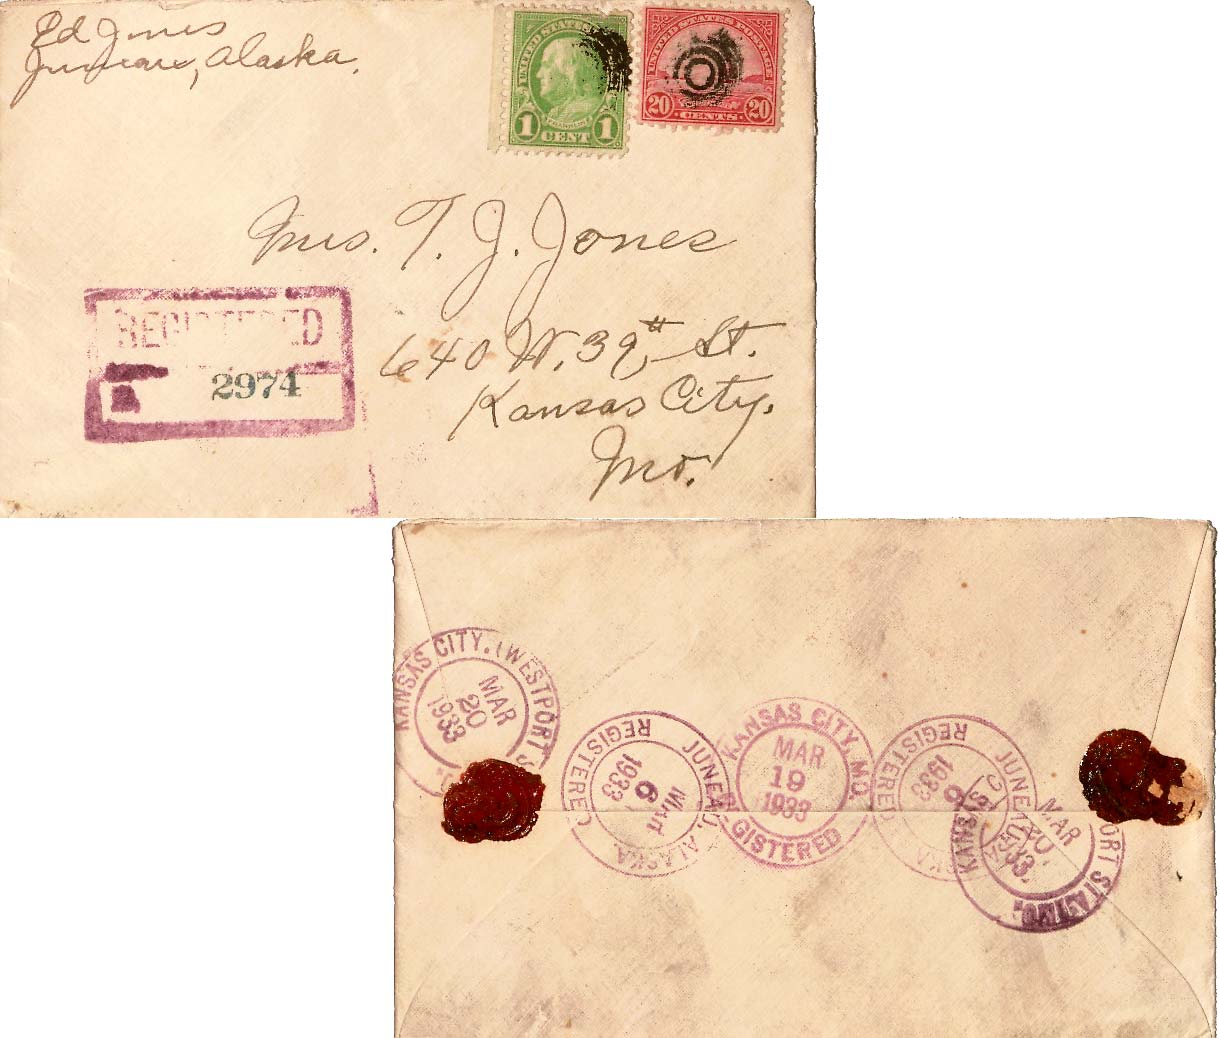 Ed Jones
Juneau, Alaska.
UNITED STATES
FRANKLIN
1 CENT 1
UNITED STATES POSTAGE
20 CENTS 20
Mrs. T. J. Jones
640 W. 39th St.
Kansas City,
Mo.
REGISTERED
2974
KANSAS CITY, (WESTPORT S
MAR
20
1933
JUNEAU, ALASKA.
REGISTERED
MAR
6
1933
KANSAS CITY, MO.
REGISTERED
MAR
19
1933
JUNEAU
ALASKA
REGISTERED
6
1933
KANSAS
PORT STATION.
MAR
20
1933